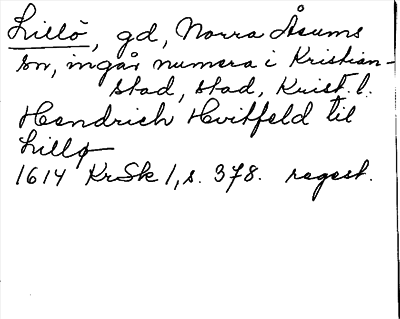 Lillö, gd, Norra Åsums
sn, ingår numera i Kristian-
stad, stad, Krist. l.
Hendrich Hvitfeld til
Lillø
1614 KrSk 1, s. 378. regest.